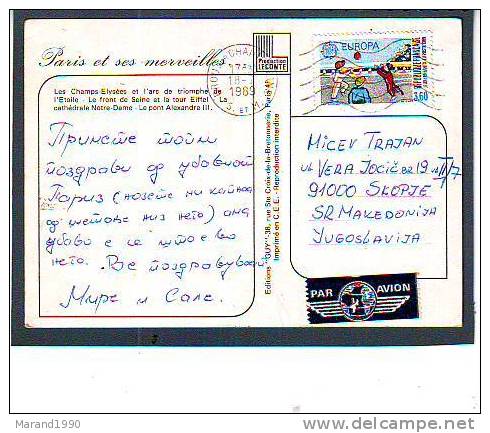 Paris et ses merveilles
Production
LECONTE
1989
EUROPA
3,60
Les Champs-Elysées et l'arc de triomphe de
l'Etoile - Le front de Seine et la tour Eiffel - La
cathédrale Notre-Dame - Le pont Alexandre III.
Примете топли
поздрави од убавиот
Париз (нозете ни капнаа
од шетање низ него) ама
убаво е сѐ што е во
него. Ве поздравуваат
Мире и Сале.
Editions "GUY" - 38, rue Ste Croix-de-la-Bretonnerie, Paris 4e
Imprimé en C.E.E. - Reproduction interdite
MICEV TRAJAN
ul VERA JOCIČ 19
91000 SKOPJE
SR MAKEDONIJA
JUGOSLAVIJA
PAR AVION
Marand1990
delcampe.net